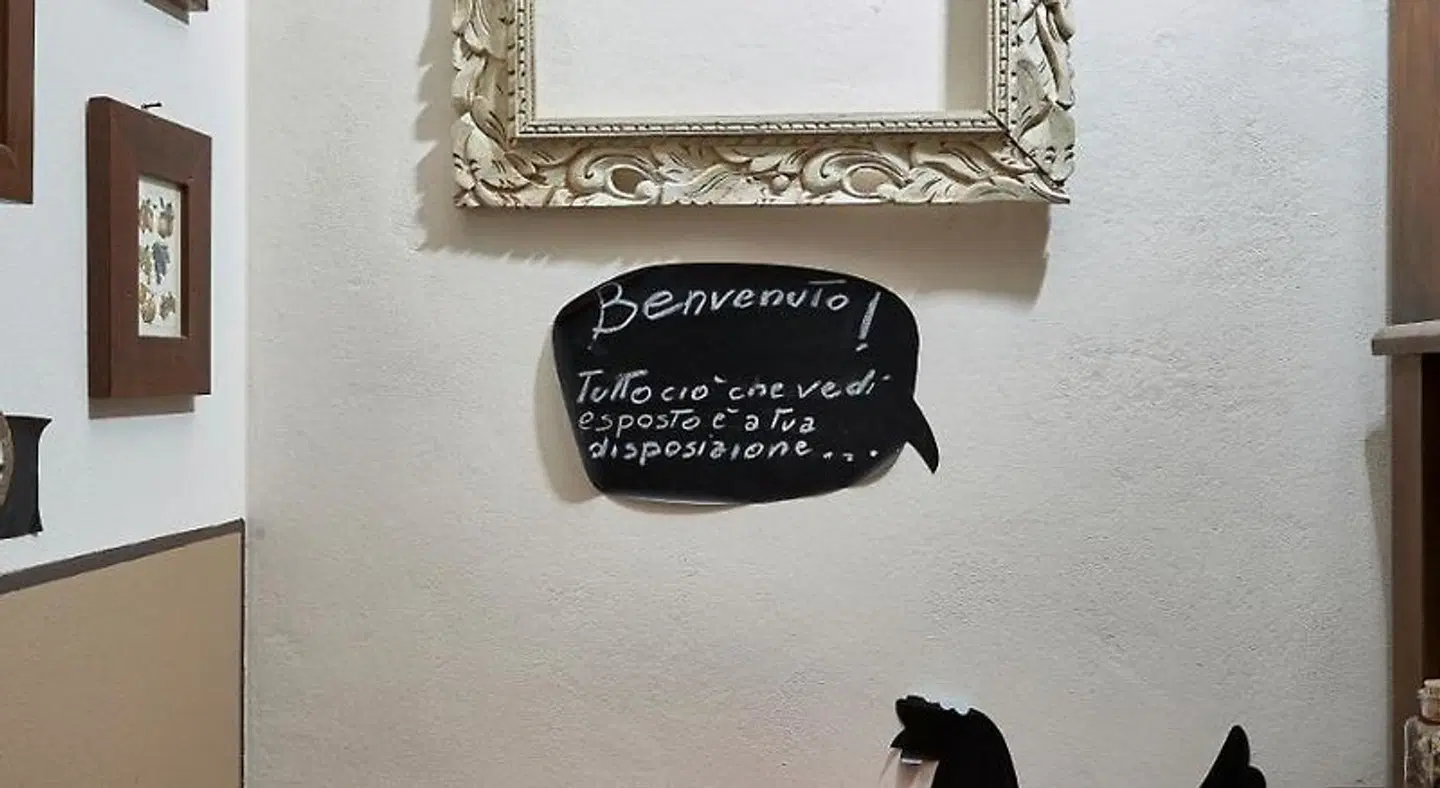 Benvenuto!
Tutto ciò che vedi
esposto è a tua
disposizione...